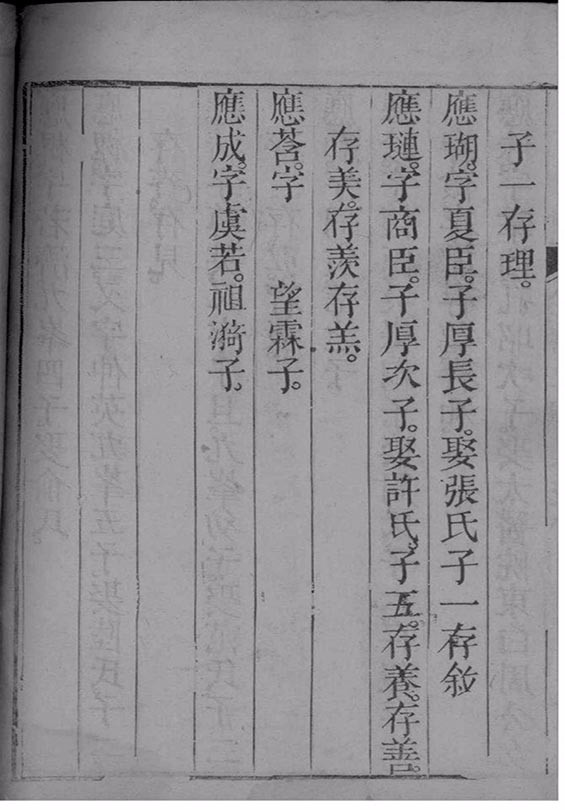 子一存理。
應瑚。字夏臣。子厚長子。娶張氏子一存敘
應璉。字商臣。子厚次子。娶許氏。子五。存養。存善。
存美。存羨存羔。
應荅。字　望霖子。
應成。字虞若。祖漪子。